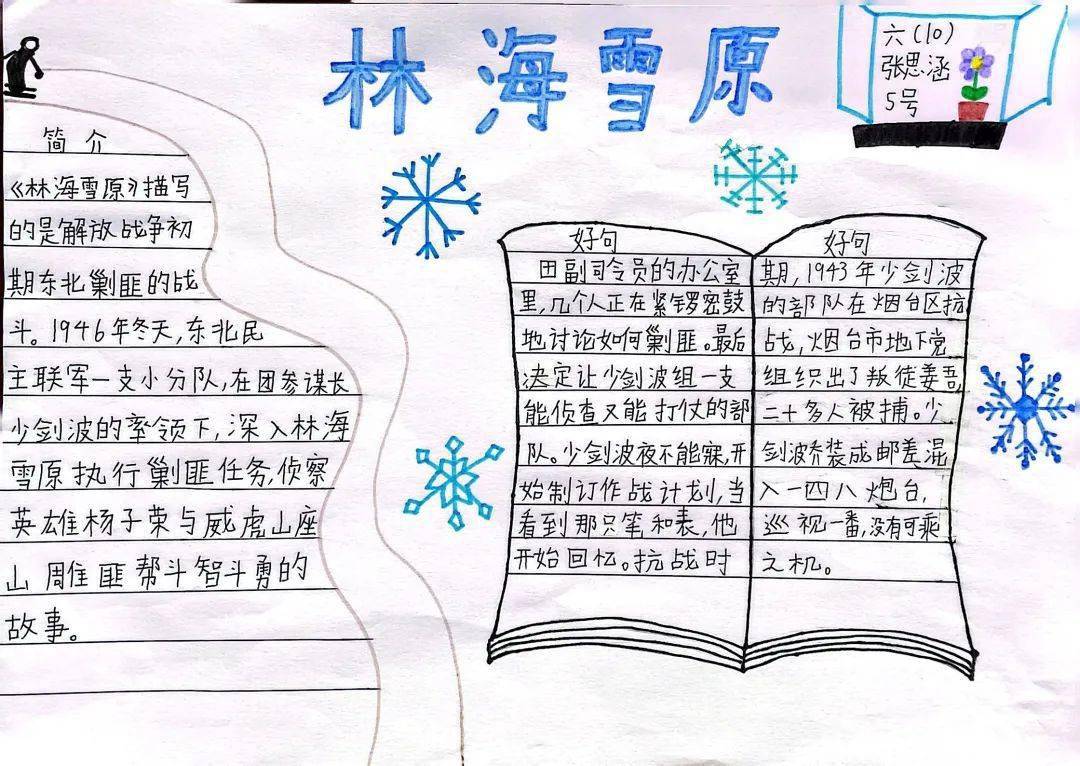 林海雪原
六(10)
张思涵
5号
简介
《林海雪原》描写
的是解放战争初
期东北剿匪的战
斗。1946年冬天,东北民
主联军一支小分队,在团参谋长
少剑波的率领下,深入林海
雪原执行剿匪任务,侦察
英雄杨子荣与威虎山座
山雕匪帮斗智斗勇的
故事。
好句
田副司令员的办公室
里,几个人正在紧锣密鼓
地讨论如何剿匪。最后
决定让少剑波组一支
能侦查又能打仗的部
队。少剑波夜不能寐,开
始制订作战计划,当
看到那只笔和表,他
开始回忆。抗战时
好句
期,1943年少剑波
的部队在烟台区抗
战,烟台市地下党
组织出了叛徒姜吾,
二十多人被捕。少
剑波乔装成邮差混
入一四八炮台,
巡视一番,没有可乘
之机。